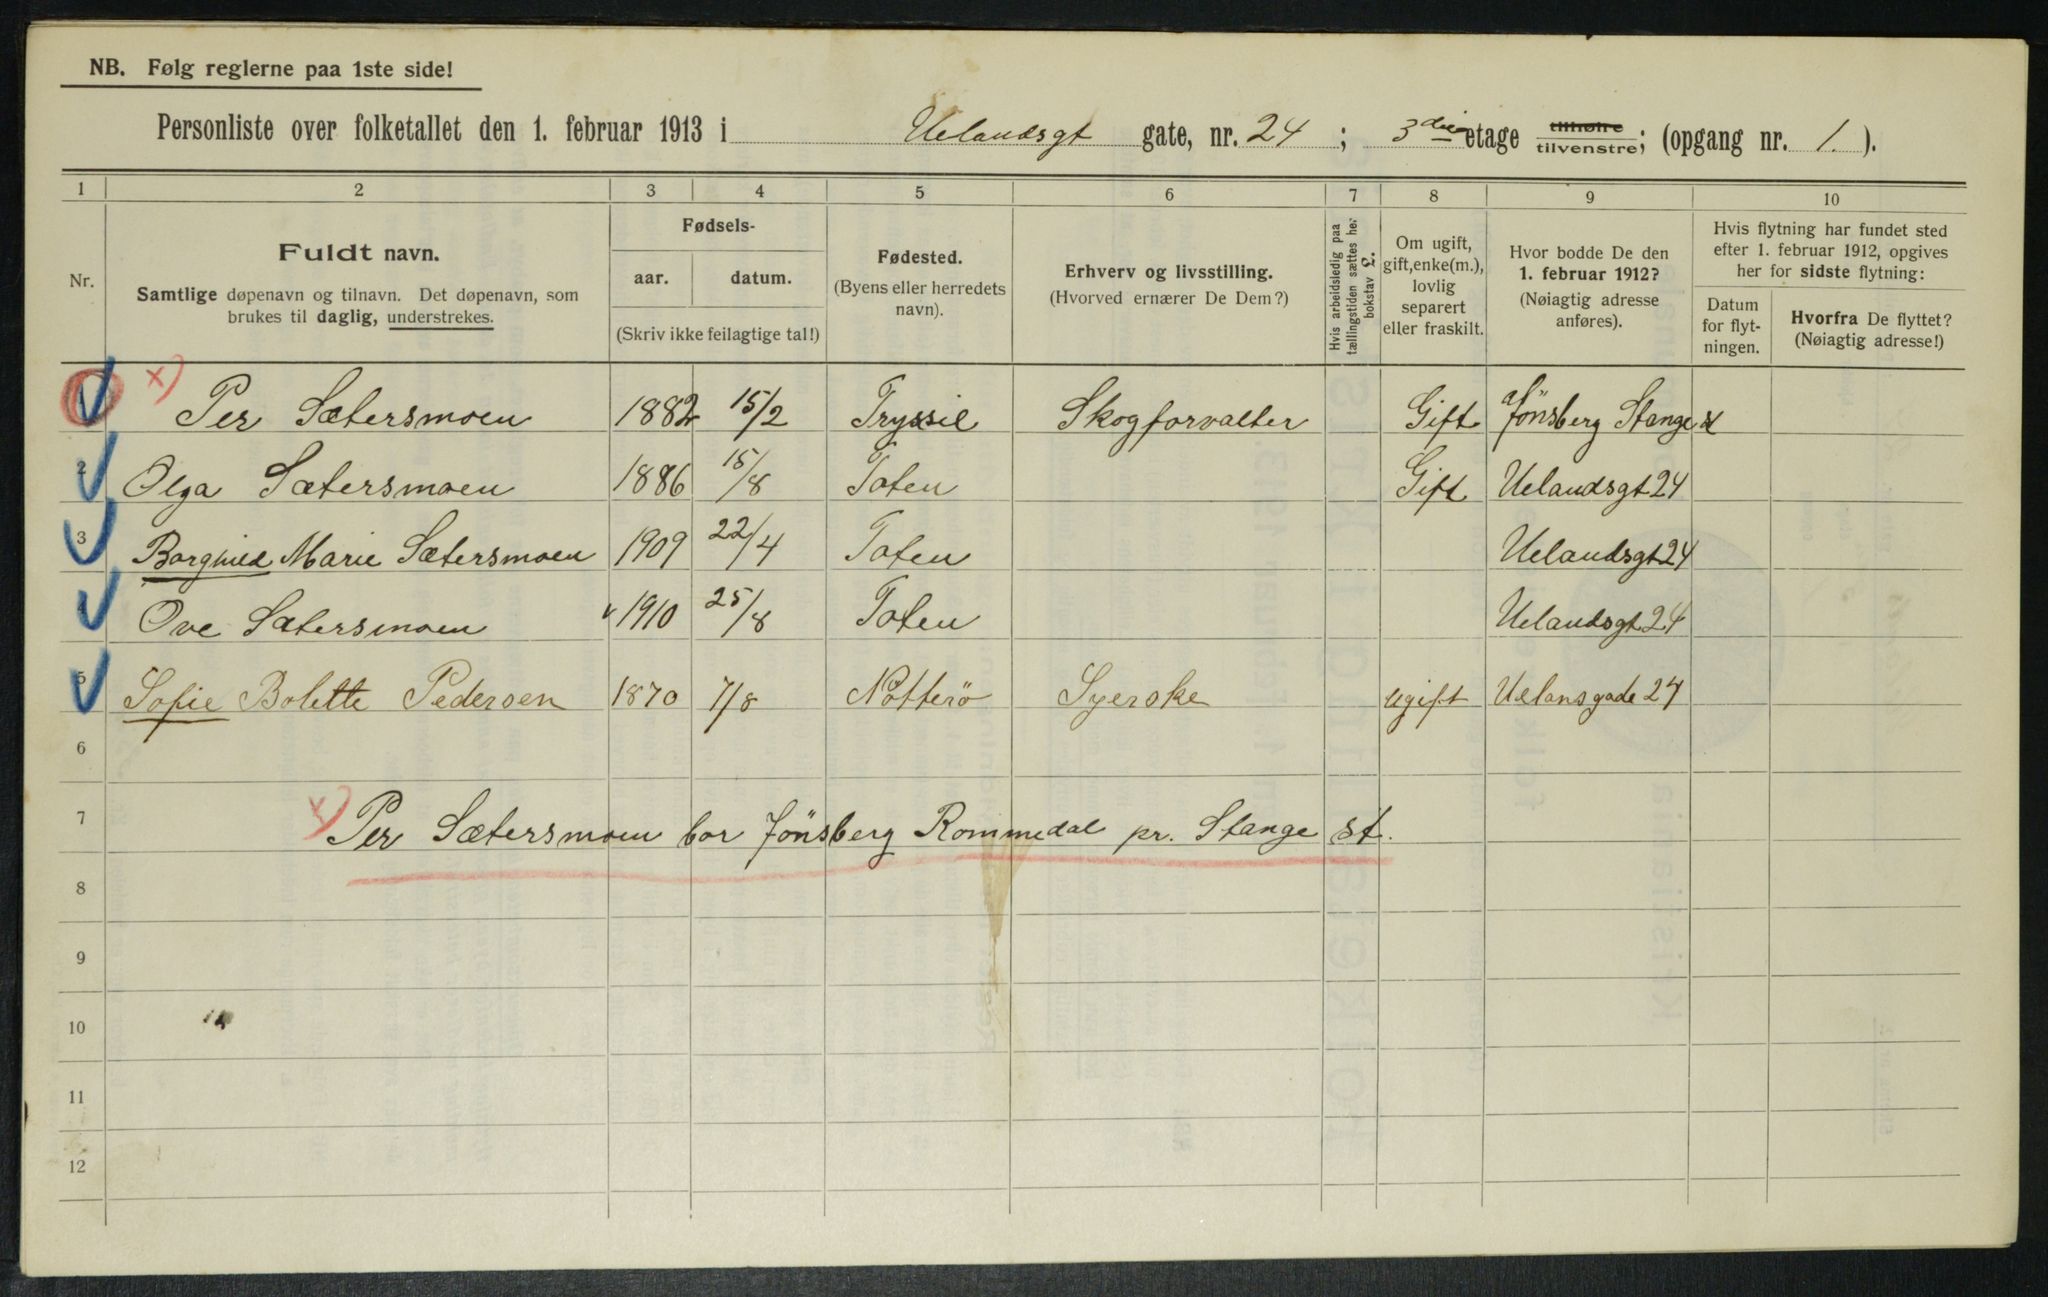 NB. Følg reglerne paa 1ste side!
Personliste over folketallet den 1. februar 1913 i Uelandsgt gate, nr. 24 ; 3die etage tilhøire tilvenstre; (opgang nr. 1. ).
1 2 3 4 5 6 7 8 9 10
Nr.
Fuldt navn.
Samtlige døpenavn og tilnavn. Det døpenavn, som
brukes til daglig, understrekes.
Fødsels-
aar. datum.
(Skriv ikke feilagtige tal!)
Fødested.
(Byens eller herredets
navn).
Erhverv og livsstilling.
(Hvorved ernærer De Dem?)
Hvis arbeidsledig paa
tællingstiden sættes her
bokstav £.
Om ugift,
gift, enke(m.),
lovlig
separert
eller fraskilt.
Hvor bodde De den
1. februar 1912?
(Nøiagtig adresse
anføres).
Hvis flytning har fundet sted
efter 1. februar 1912, opgives
her for sidste flytning:
Datum
for flyt-
ningen.
Hvorfra De flyttet?
(Nøiagtig adresse!)
1 x) Per Sætersmoen 1882 15/2 Tryssil Skogforvalter Gift Jönsberg Stange
2 Olga Sætersmoen 1886 15/8 Toten Gift Uelandsgt 24
3 Borghild Marie Sætersmoen 1909 22/4 Toten Uelandsgt 24
4 Ove Sætersmoen 1910 25/8 Toten Uelandsgt 24
5 Sofie Bolette Pedersen 1870 7/8 Nötterö Syerske Ugift Uelansgade 24
6
7 x) Per Sætersmoen bor Jönsberg Rommedal pr. Stange st.
8
9
10
11
12